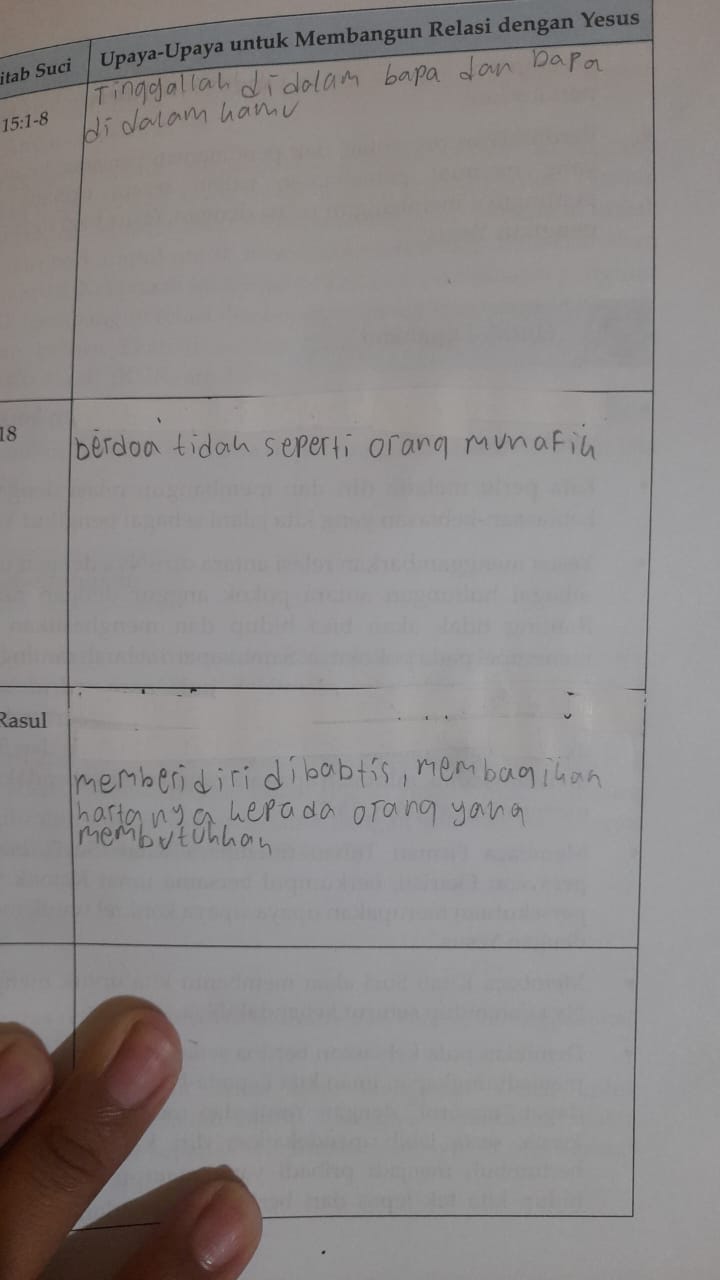 itab Suci
Upaya-Upaya untuk Membangun Relasi dengan Yesus
15:1-8
Tinggallah di dalam bapa dan bapa
di dalam kamu
18
berdoa tidak seperti orang munafik
Rasul
memberi diri dibabtis, membagikan
hartanya kepada orang yang
membutuhkan